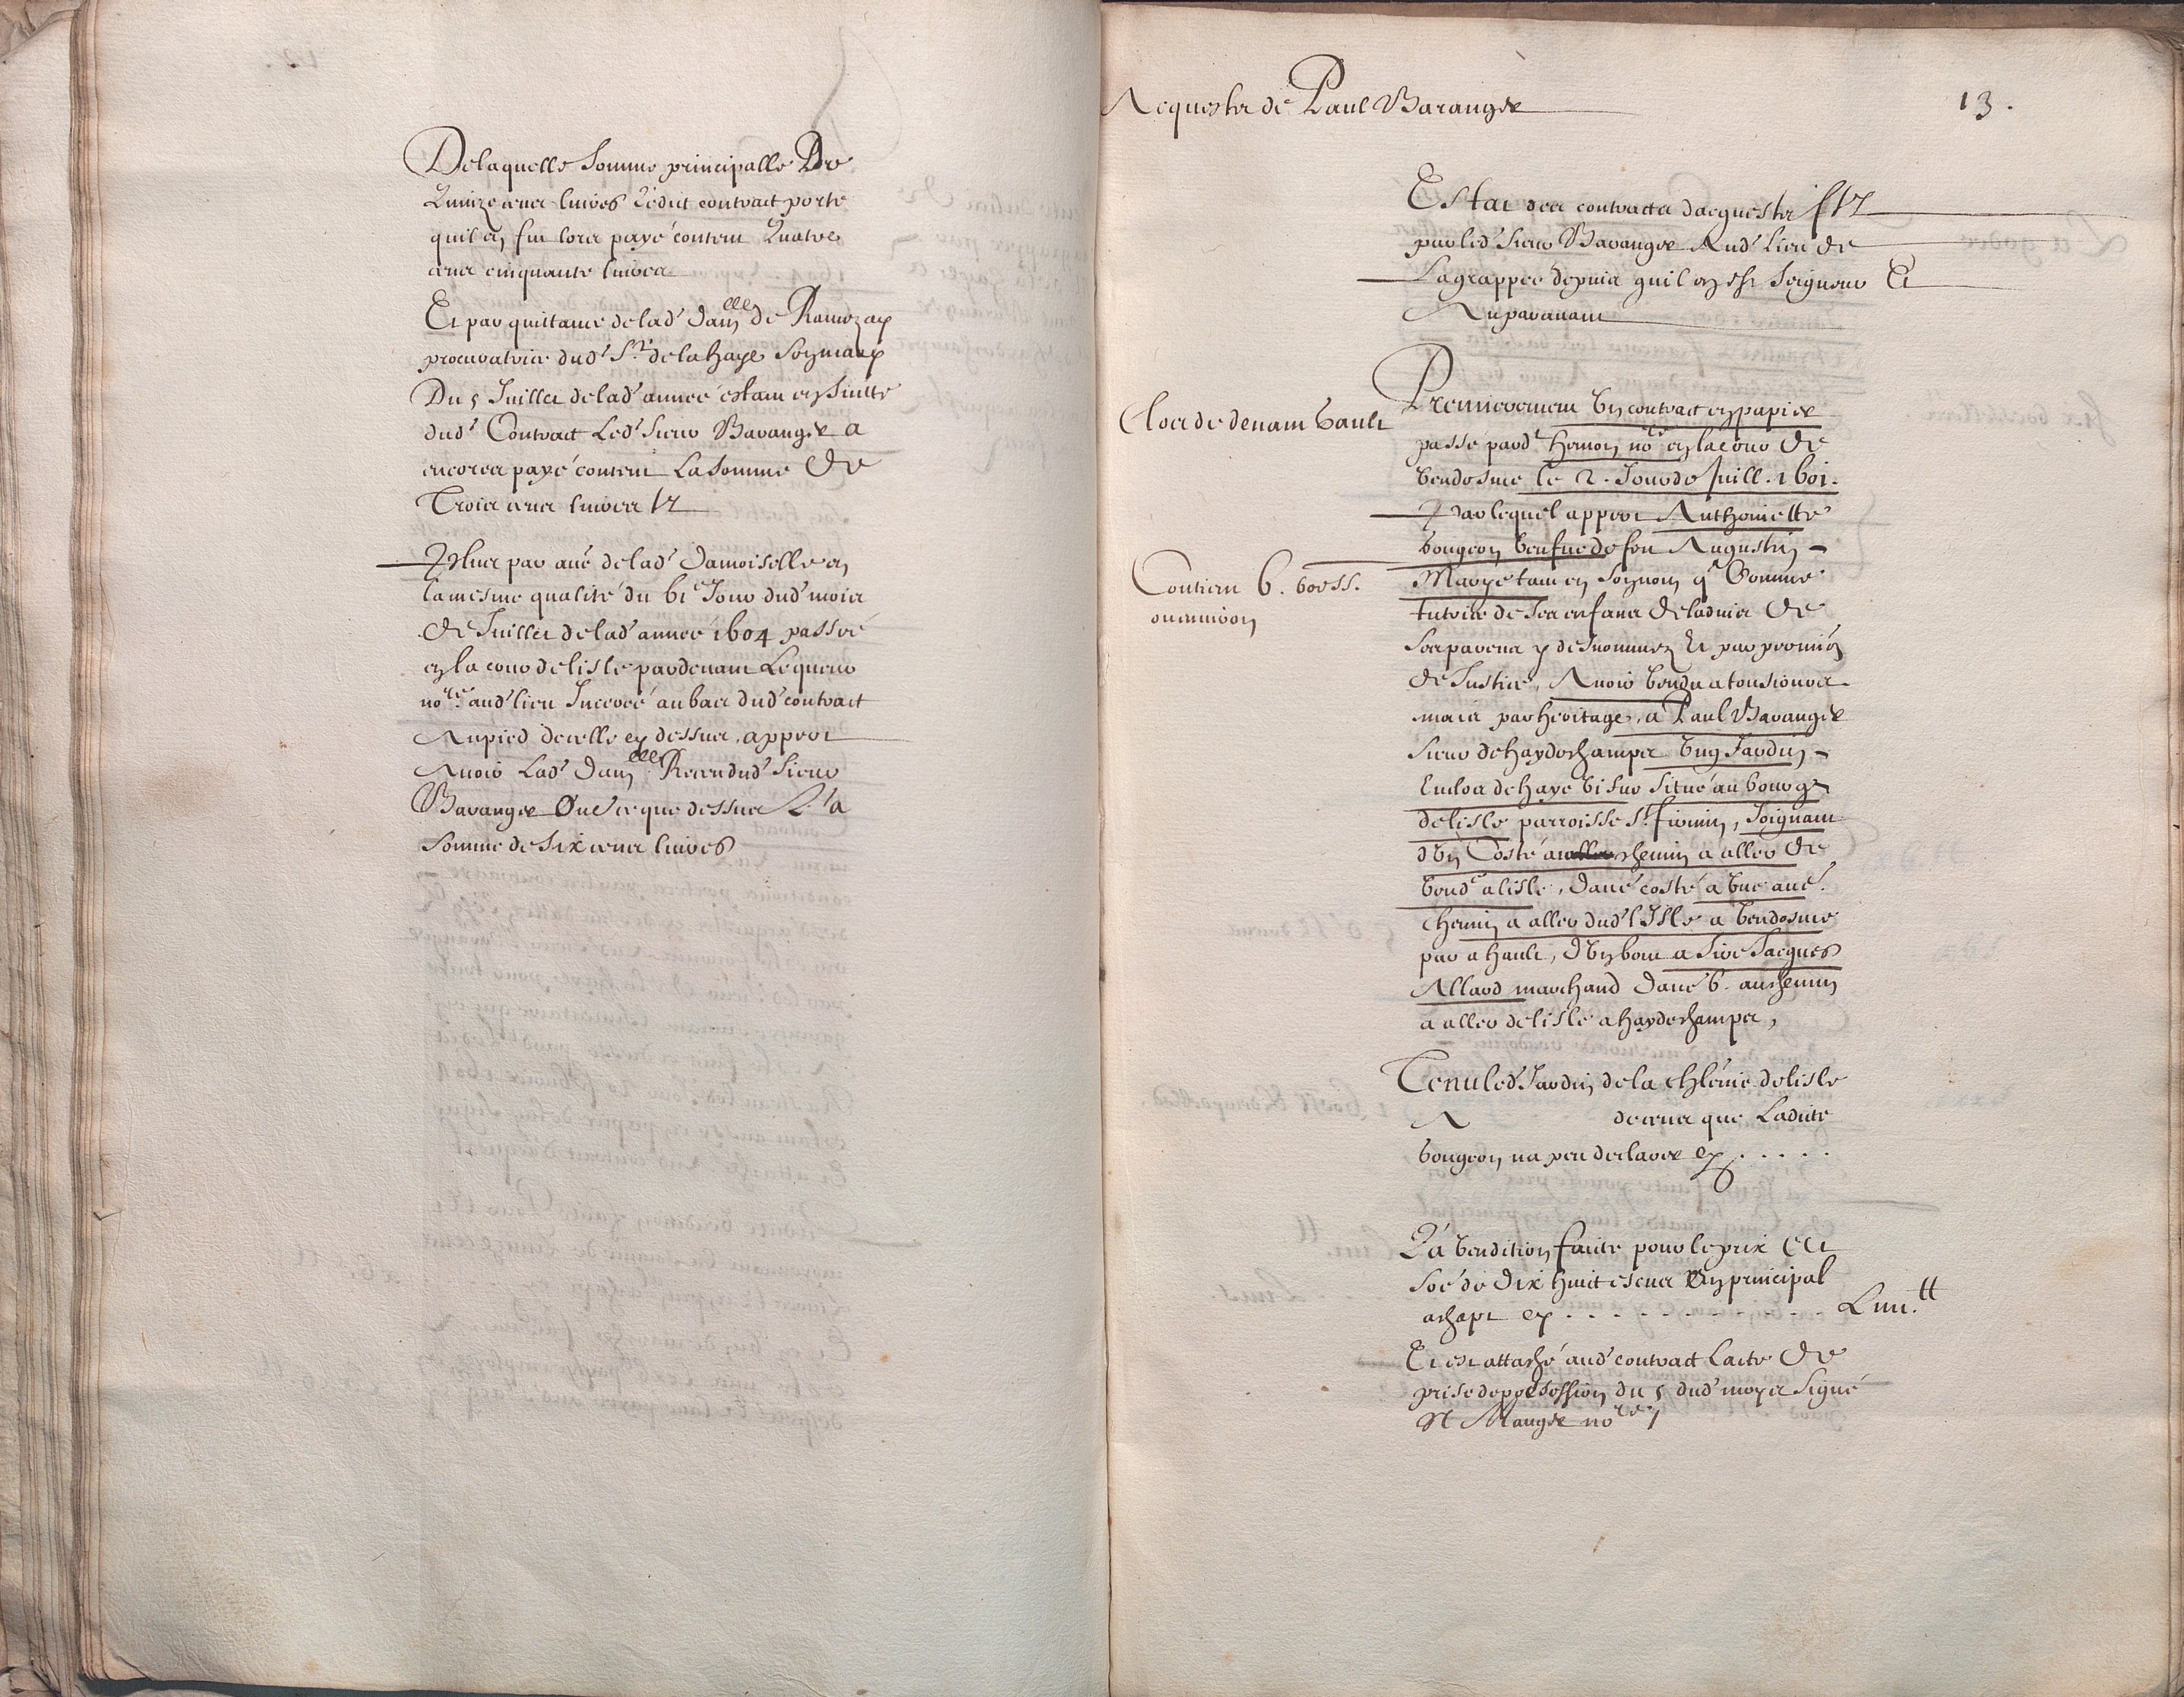 Delaquelle somme principalle De
Quinze cens livres Ledict contract porte
quil en fut lors payé content Quatre
cens cinquante livres
Et par quittance de lad' dam^elle de Ramezay
procuratrice dud' S.^r de la haye son mary
Du 5 Juillet de lad' année estant en suitte
dud' Contract Led' sieur Baranger a
encores payé content La somme De
Trois cens livres
Plus par aué de lad' Damoiselle en
la mesme qualité du vi^e Jour dud' mois
De Juillet de lad' année 1604 passée
en la cour de lisle pardevant Lequeux
no^re aud' lieu Inceree au bas dud' contract
Au pied de celle cy dessus, appert
Avoir Lad' Dam^elle Receu dud' sieur
Baranger Oultre ce que dessus La
somme de six cens livres
Acquests de Paul Baranger
13.
Estat des contracts dacquests
par led' sieur Baranger Aud' Lieu de
Lagrappee depuis quil en est Seigneur Et
Auparavant
Clos de devant Vault
Premierement Un contract en papier
passé pard^t Hernon no^re en la cour De
Vendosme le 2. Jour de Juill. 1601.
Par lequel appert Anthoinette
bougeon veufue de feu Augustin
Contient 6. boess.
ou environ
Marye tant en son nom q^e Comme
tutrice de ses enfans De ladvis De
Ses parens y desnommez Et par permi^on
De Justice, Avoir Vendu a tousiours
mais par heritage, a Paul Baranger
Sieur de haydeschamps Ung Jardin
Enclos de haye vi sur situé au bourg
de lisle parroisse S^t firmin, Joignant
d'Un Costé au chemin a aller De
Vend^e a lisle, Daué costé a Une aué.
Chemin a aller dud' l'Isle a Vendosme
par a hault, D'Un bout a Sire Jacques
Allard marchand Daué b. au chemin
a aller de lisle a haydeschamps,
Tenu led' Jardin de la chlenie de lisle
A de cens que Ladicte
bougeon na peu desclarer cy . . . . .
La Vendition faicte pour le prix Et
Soe de Dix huit escus En principal
achapt cy . . . . . . . . . . Liiii.^tt
Et est attaché aud' contract Lacte De
prise de possession du 5 dud' moys Signé
N Mauger no^re